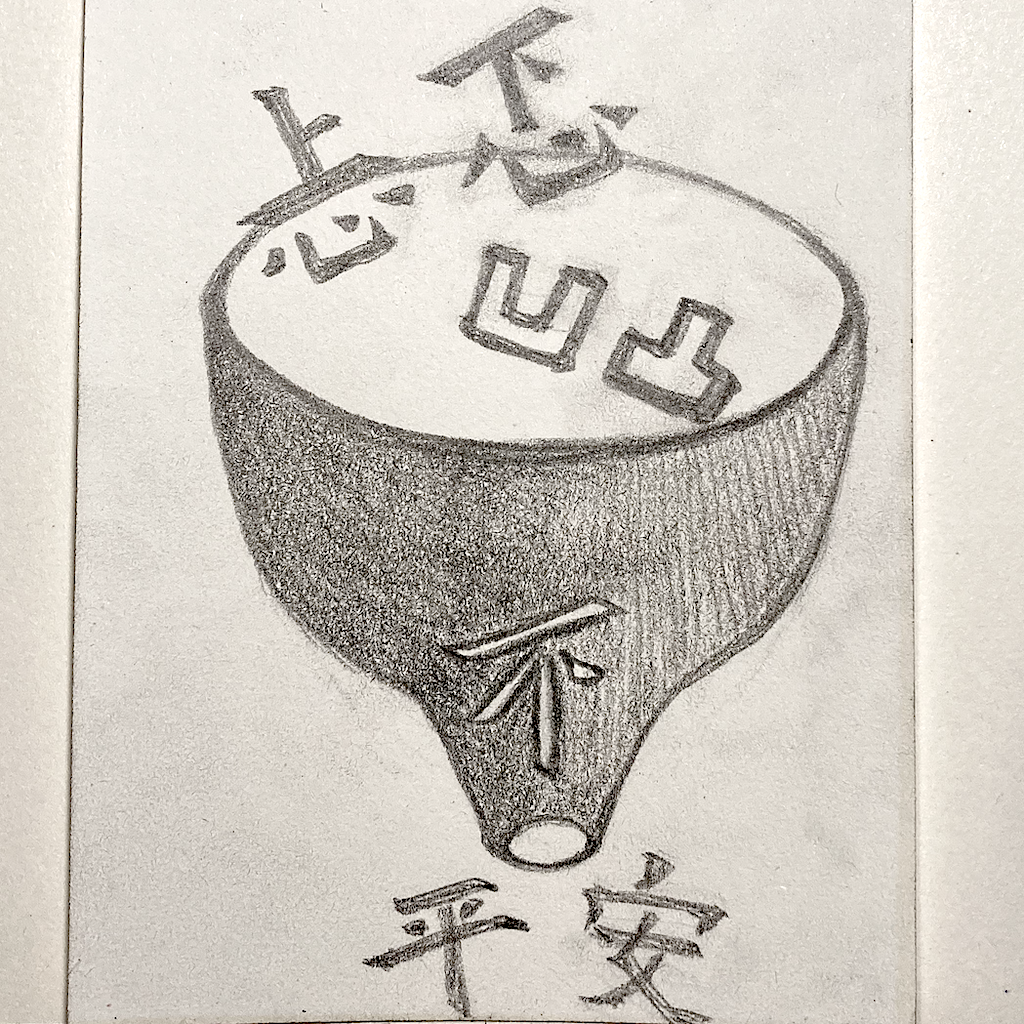 忐忑
凹凸
不
平安